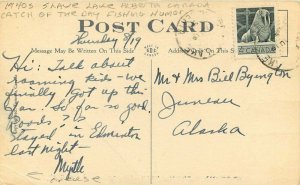 1940S SLAVE LAKE ALBERTA CANADA
CATCH OF THE DAY FISHING HUMOR
POST CARD
Message May Be Written On This Side
Address May Be Written On This Side
CANADA
Thursday 8/19
Hi: Talk about
roaming kids - we
finally got up this
way. So far so good.
Roads? ??
Stayed in Edmonton
last night -
Myrtle
Mr & Mrs Bill Byington
Juneau
Alaska